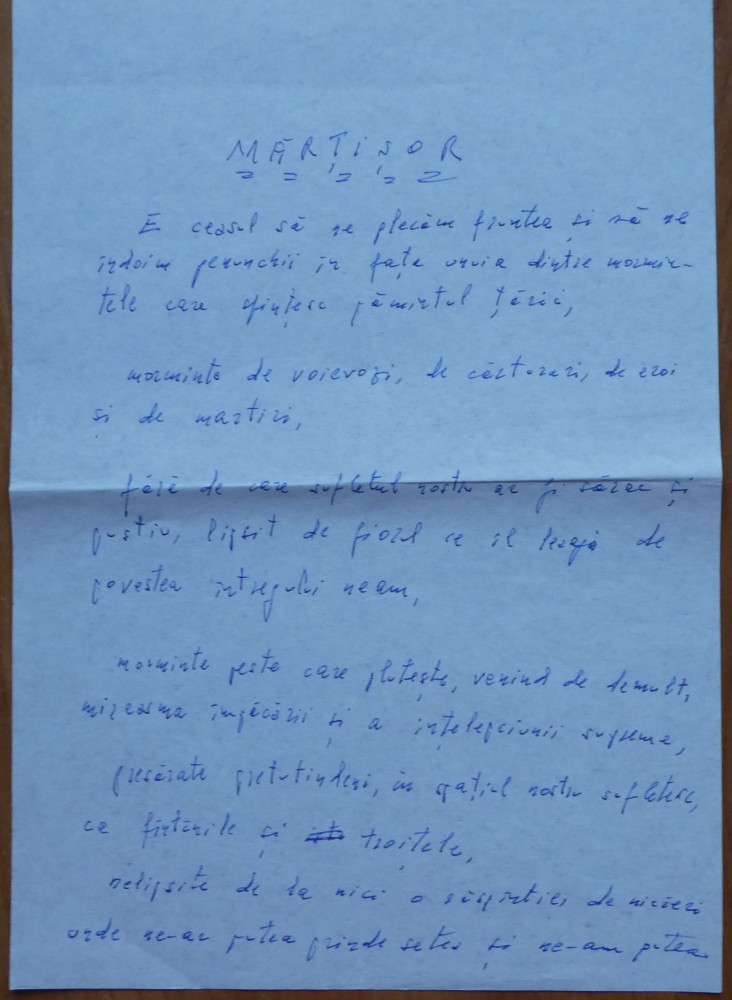 MĂRȚIȘOR
E ceasul să ne plecăm fruntea și să ne
îndoim genunchii în fața unuia dintre mormin-
tele care sfințesc pămîntul țării,
morminte de voievozi, de cărturari, de eroi
și de martiri,
fără de care sufletul nostru ar fi sărac și
pustiu, lipsit de fiorul ce îl leagă de
povestea întregului neam,
morminte peste care plutește, venind de demult,
mireasma împăcării și a înțelepciunii supreme,
presărate pretutindeni, în spațiul nostru sufletesc,
ca fîntînile și troițele,
nelipsite de la nici o răspîntie, de nicăieri
unde ne-ar putea prinde setea și ne-am putea